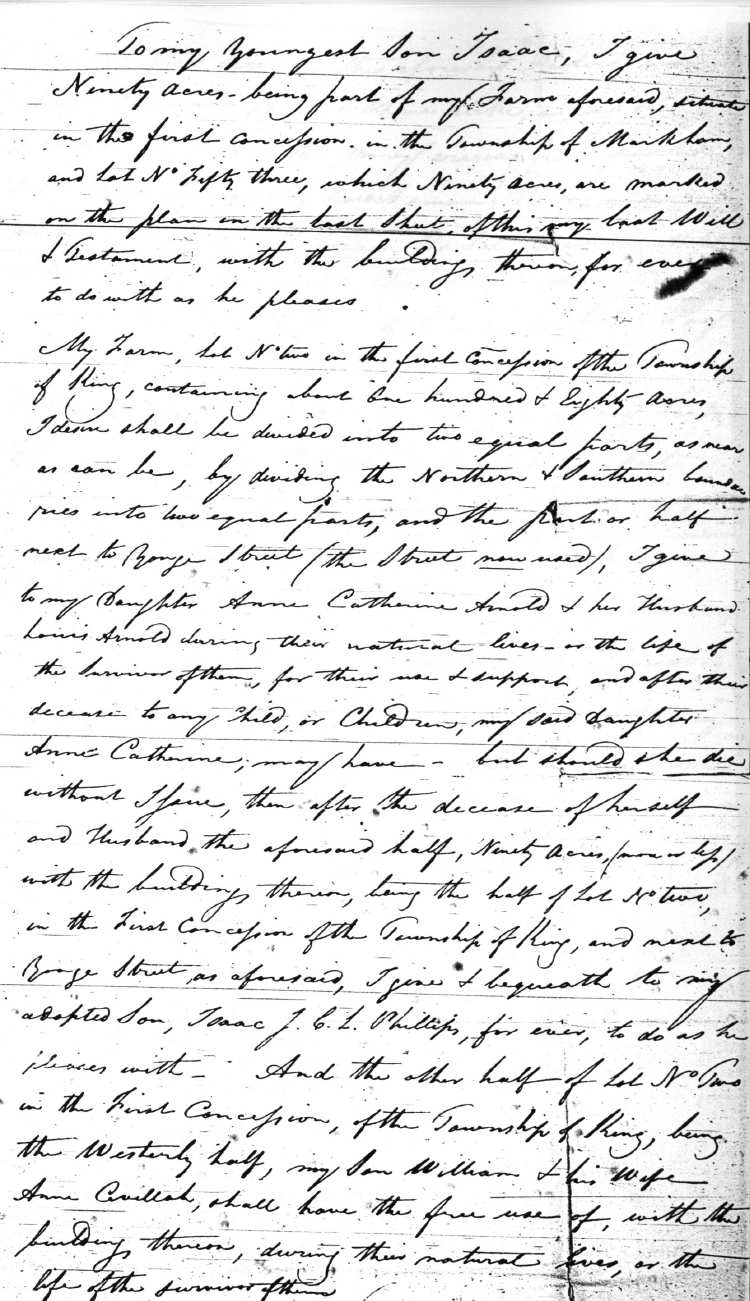 To my Youngest Son Isaac, I give
Ninety Acres - being part of my Farm aforesaid, situate
in the first concession in the Township of Markham,
and Lot No Fifty three, which Ninety Acres, are marked
on the plan in the last Sheet, of this my last Will
& Testament, with the buildings thereon, for ever
to do with as he pleases.
My Farm, Lot No two in the first Concession of the Township
of King, containing about One hundred & Eighty Acres,
I desire shall be divided into two equal parts, as near
as can be, by dividing the Northern & Southern bounda
ries into two equal parts, and the part or half
next to Yonge Street (the Street now used), I give
to my Daughter Anne Catherine Arnold & her Husband
Louis Arnold during their natural lives - or the life of
the Survivor of them, for their use & support, and after their
decease to any Child, or Children, my said Daughter
Anne Catherine, may have - but should she die
without Issue, then after the decease of herself
and Husband the aforesaid half, Ninety Acres, (more or less)
with the buildings thereon, being the half of Lot No two,
in the First Concession of the Township of King, and next to
Yonge Street as aforesaid, I give & bequeath to my
adopted Son, Isaac J. C. L. Phillips, for ever, to do as he
pleases with - And the other half of Lot No Two
in the First Concession, of the Township of King, being
the Westerly half, my Son William & his Wife
Anne Cavillah, shall have the free use of, with the
buildings thereon, during their natural lives, or the
life of the survivor of them